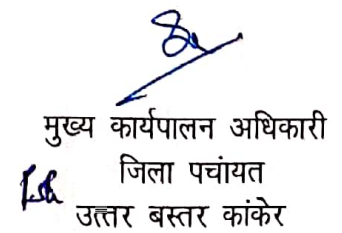 मुख्य कार्यपालन अधिकारी
जिला पचांयत
उत्तर बस्तर कांकेर